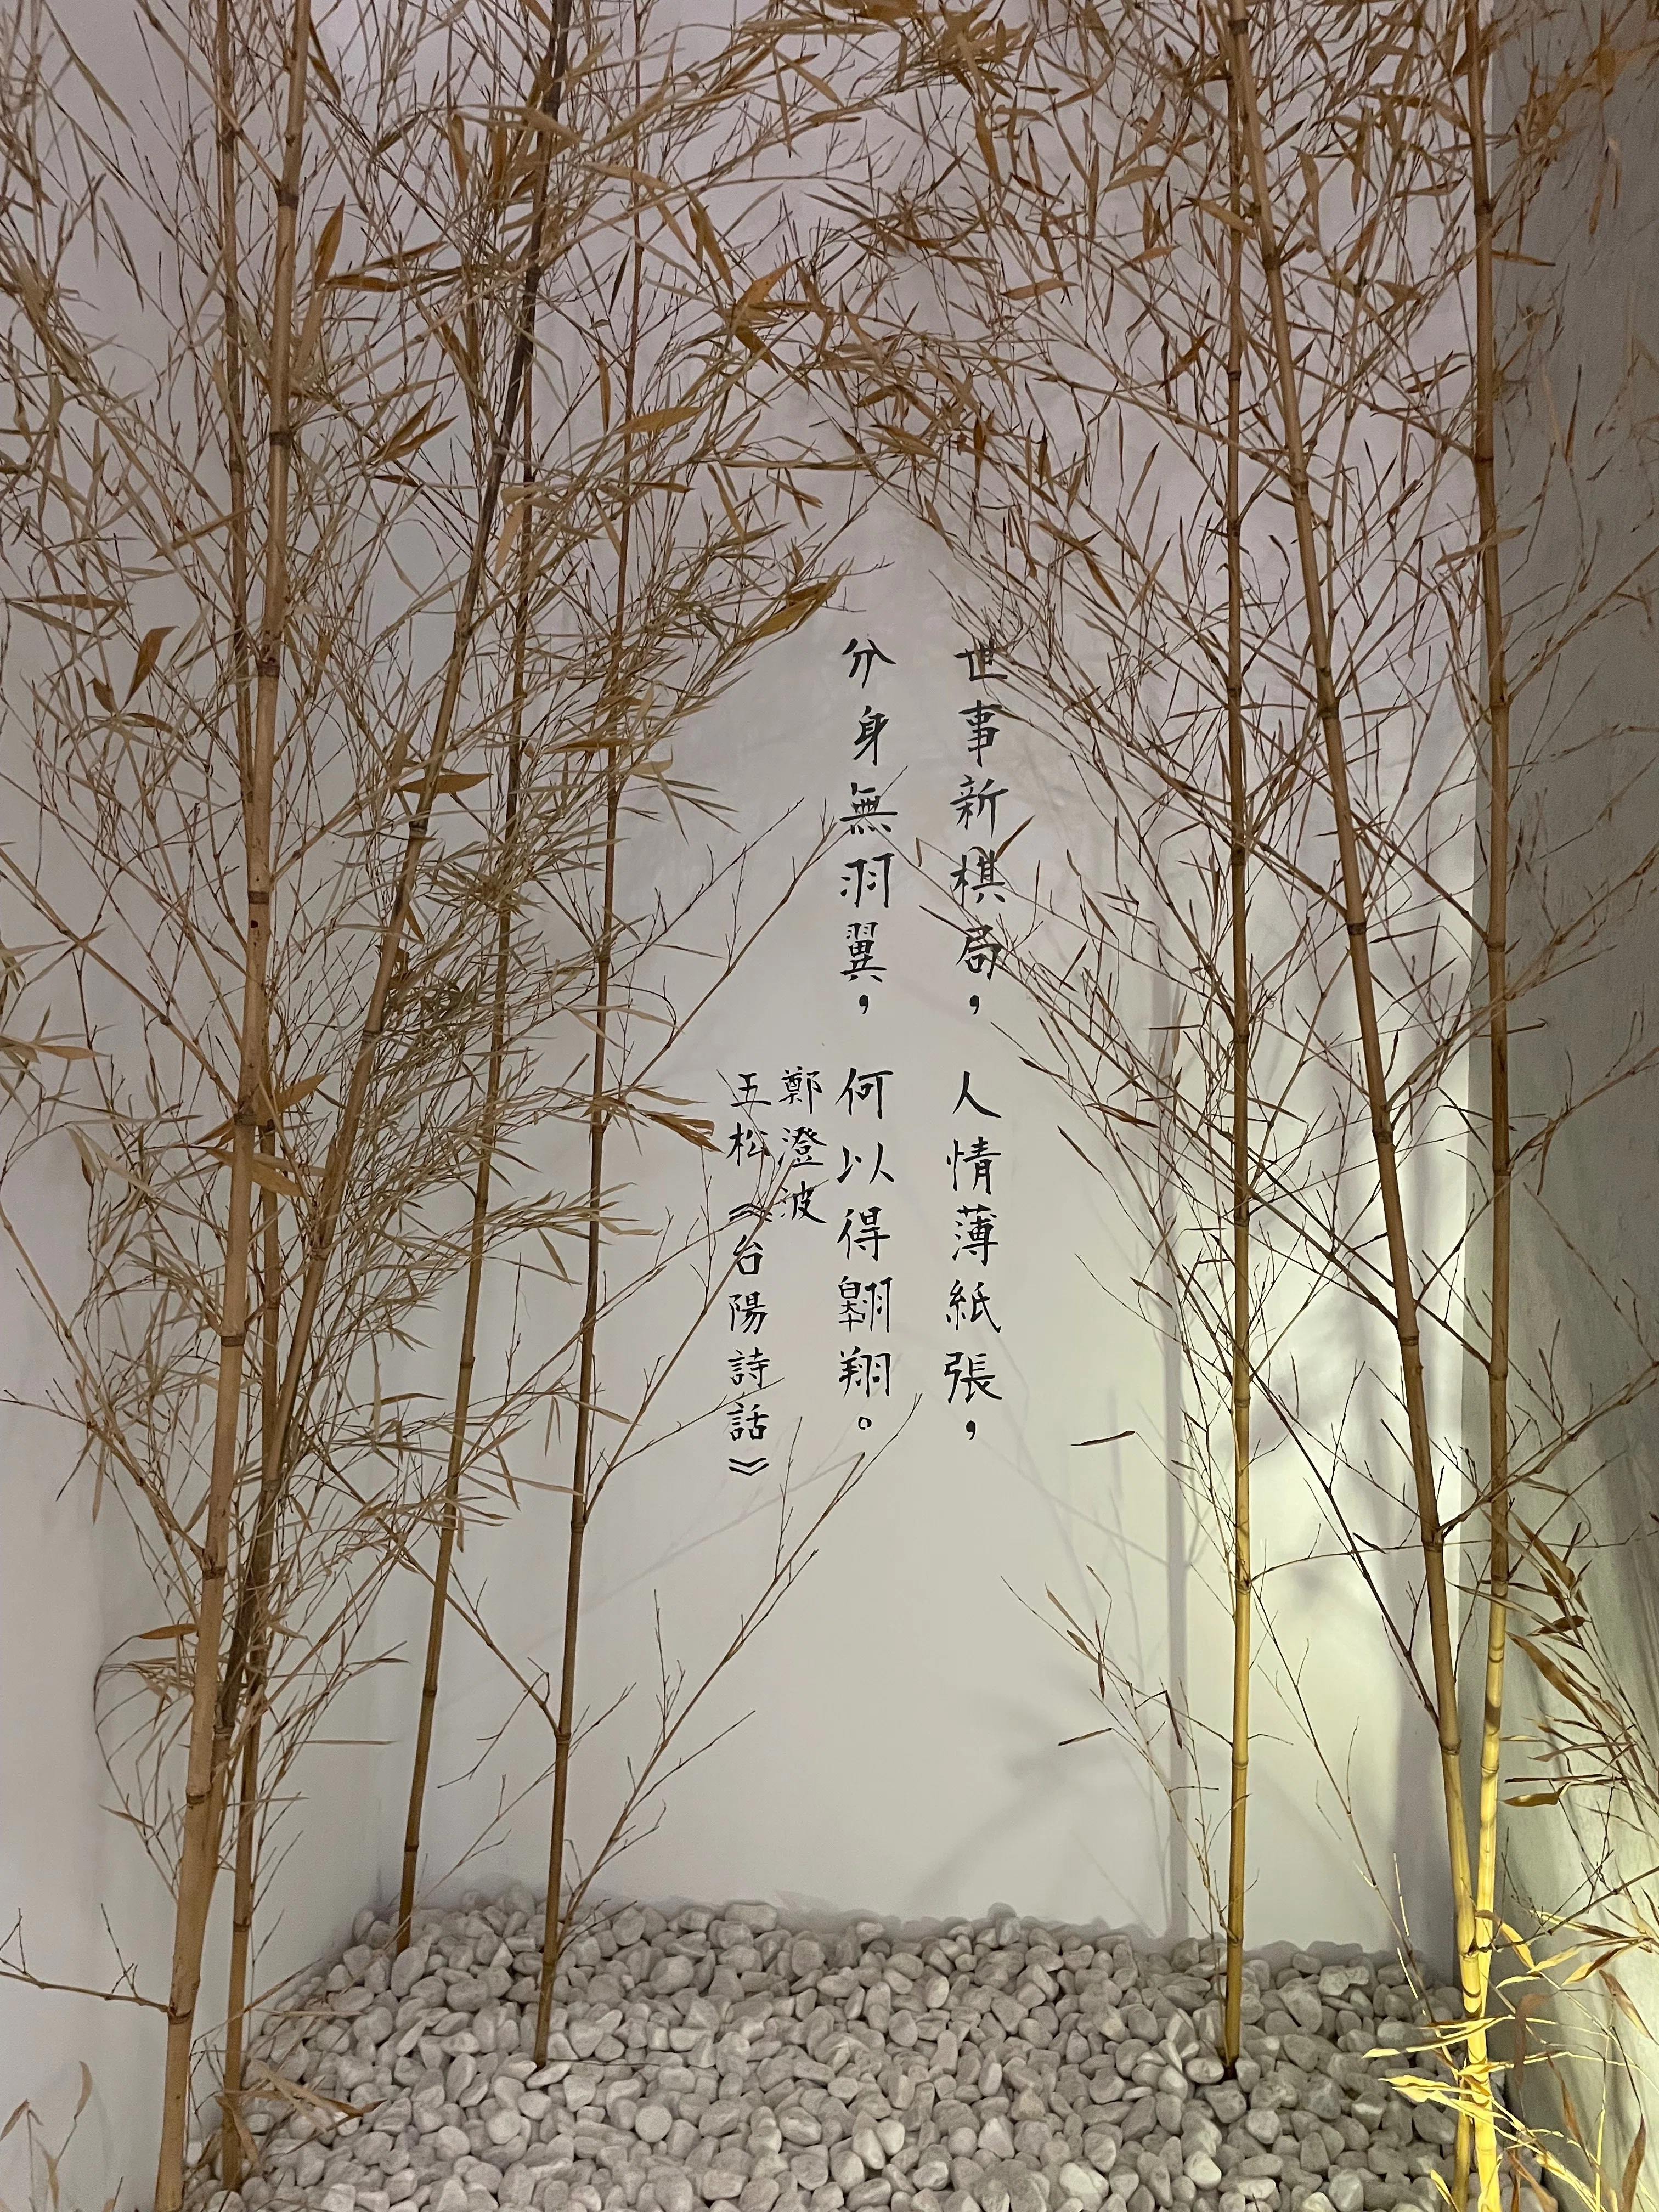 世事新棋局，人情薄紙張，
分身無羽翼，何以得翱翔。
鄭澄波
五松《台陽詩話》